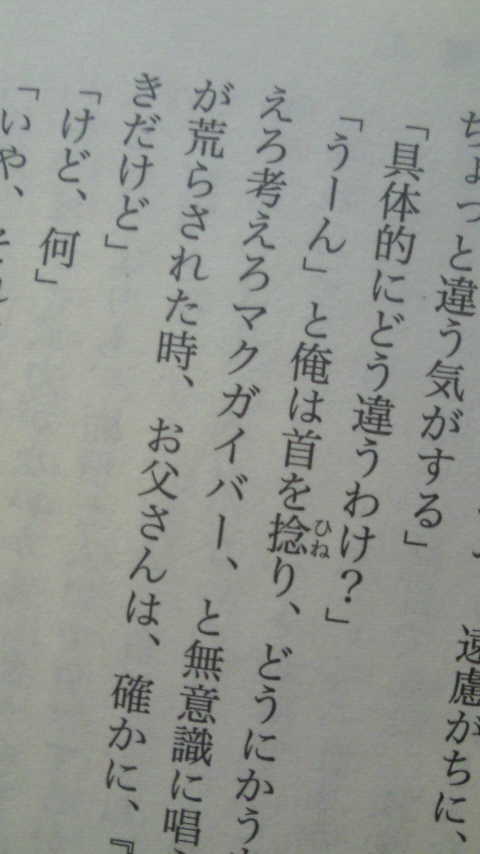 ちょっと違う気がする」 遠慮がちに、
「具体的にどう違うわけ?」
「うーん」と俺は首を捻り、どうにかう
えろ考えろマクガイバー、と無意識に唱
が荒らされた時、お父さんは、確かに、『
きだけど」
「けど、何」
「いや、それ